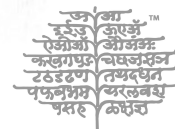 अ आ ™
इ ई उ ऊ ए ऐ
ऐ ओ औ अं अः
क ख ग घ ङ च छ ज झ ञ
ट ठ ड ढ ण त थ द ध न
प फ ब भ म य र ल व श
ष स ह ळ क्ष ज्ञ